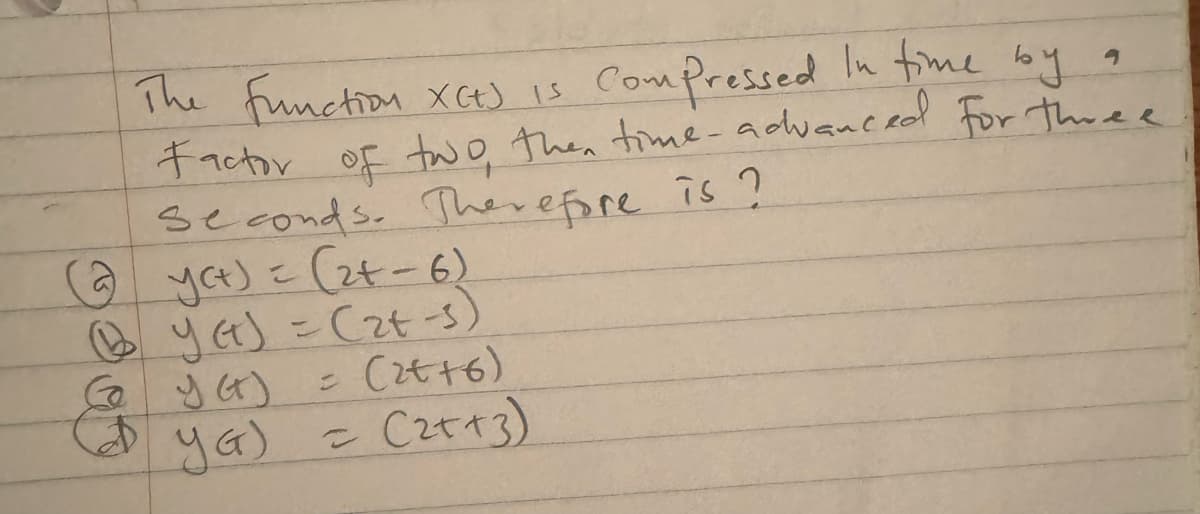 The function x(t) is Compressed In time by a
factor of two, then time-advanced for three
seconds. Therefore is ?
(a) y(t) = (2t-6)
(b) y(t) = (2t-3)
(c) y(t) = (2t+6)
(d) y(t) = (2t+3)